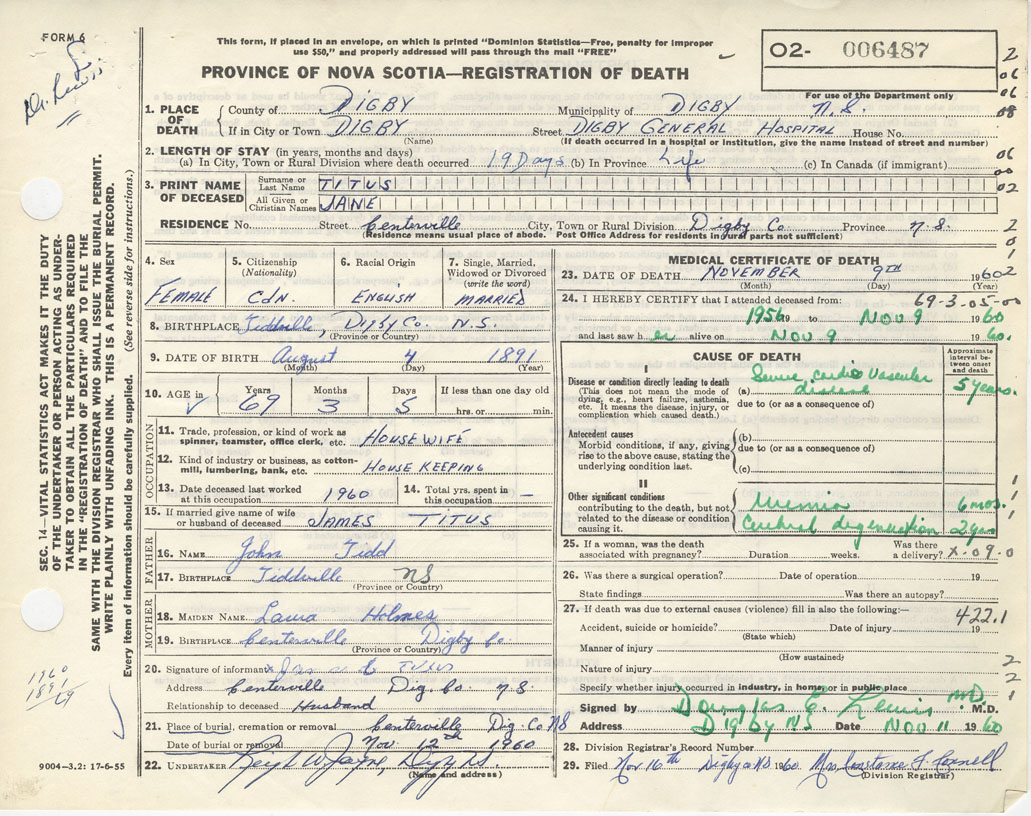 FORM 6
This form, if placed in an envelope, on which is printed "Dominion Statistics—Free, penalty for improper
use $50," and properly addressed will pass through the mail "FREE"
O2- 006487
For use of the Department only
PROVINCE OF NOVA SCOTIA—REGISTRATION OF DEATH
Dr. Lewis
1. PLACE OF DEATH
County of DIGBY Municipality of DIGBY N.S.
If in City or Town DIGBY Street DIGBY GENERAL HOSPITAL House No.
(Name) (If death occurred in a hospital or institution, give the name instead of street and number)
2. LENGTH OF STAY (in years, months and days)
(a) In City, Town or Rural Division where death occurred 19 Days (b) In Province Life (c) In Canada (if immigrant)
3. PRINT NAME OF DECEASED
Surname or Last Name TITUS
All Given or Christian Names JANE
RESIDENCE No. Street Centerville City, Town or Rural Division Digby Co. Province N.S.
(Residence means usual place of abode. Post Office Address for residents in rural parts not sufficient)
4. Sex FEMALE
5. Citizenship (Nationality) CDN.
6. Racial Origin ENGLISH
7. Single, Married, Widowed or Divorced (write the word) MARRIED
8. BIRTHPLACE Tiddville, Digby Co. N.S.
(Province or Country)
9. DATE OF BIRTH August 4 1891
(Month) (Day) (Year)
10. AGE Years 69 Months 3 Days 5 If less than one day old hrs. or min.
OCCUPATION
11. Trade, profession, or kind of work as spinner, teamster, office clerk, etc. HOUSEWIFE
12. Kind of industry or business, as cotton-mill, lumbering, bank, etc. HOUSE KEEPING
13. Date deceased last worked at this occupation 1960
14. Total yrs. spent in this occupation —
15. If married give name of wife or husband of deceased JAMES TITUS
FATHER
16. NAME John Tidd
17. BIRTHPLACE Tiddville NS
(Province or Country)
MOTHER
18. MAIDEN NAME Laura Holmes
19. BIRTHPLACE Centerville Digby Co.
(Province or Country)
20. Signature of informant TITUS
Address Centerville Dig. Co. N.S.
Relationship to deceased Husband
21. Place of burial, cremation or removal Centerville Dig. Co NS
Date of burial or removal Nov. 12th 1960
22. UNDERTAKER
(Name and address)
MEDICAL CERTIFICATE OF DEATH
23. DATE OF DEATH NOVEMBER 9TH 1960
(Month) (Day) (Year)
24. I HEREBY CERTIFY that I attended deceased from: 69-3-05-00
1956 19 to NOV 9 1960
and last saw her alive on NOV 9 1960.
CAUSE OF DEATH
Approximate interval between onset and death
I
Disease or condition directly leading to death
(This does not mean the mode of dying, e.g., heart failure, asthenia, etc. It means the disease, injury, or complication which caused death.)
(a) Severe cardio Vascular disease 5 years.
due to (or as a consequence of)
Antecedent causes
Morbid conditions, if any, giving rise to the above cause, stating the underlying condition last.
(b)
due to (or as a consequence of)
(c)
II
Other significant conditions contributing to the death, but not related to the disease or condition causing it.
6 mos.
Cerebral degeneration 2 years
25. If a woman, was the death associated with pregnancy? Duration weeks. Was there a delivery? X-09-0
26. Was there a surgical operation? Date of operation 19
State findings Was there an autopsy?
27. If death was due to external causes (violence) fill in also the following:— 422.1
Accident, suicide or homicide? Date of injury 19
(State which)
Manner of injury
(How sustained)
Nature of injury
Specify whether injury occurred in industry, in home, or in public place
Signed by Douglas E. Lewis MD M.D.
Address Digby NS Date NOV 11 1960
28. Division Registrar's Record Number
29. Filed Nov 16th Digby NS 1960 Mrs. Constance F.
(Division Registrar)
SEC. 14—VITAL STATISTICS ACT MAKES IT THE DUTY
OF THE UNDERTAKER OR PERSON ACTING AS UNDER-
TAKER TO OBTAIN ALL THE PARTICULARS REQUIRED
IN THE "REGISTRATION OF DEATH" AND TO FILE THE
SAME WITH THE DIVISION REGISTRAR WHO SHALL ISSUE THE BURIAL PERMIT.
WRITE PLAINLY WITH UNFADING INK. THIS IS A PERMANENT RECORD.
Every item of information should be carefully supplied. (See reverse side for instructions.)
1960
1891
69
9004-3.2: 17-6-55